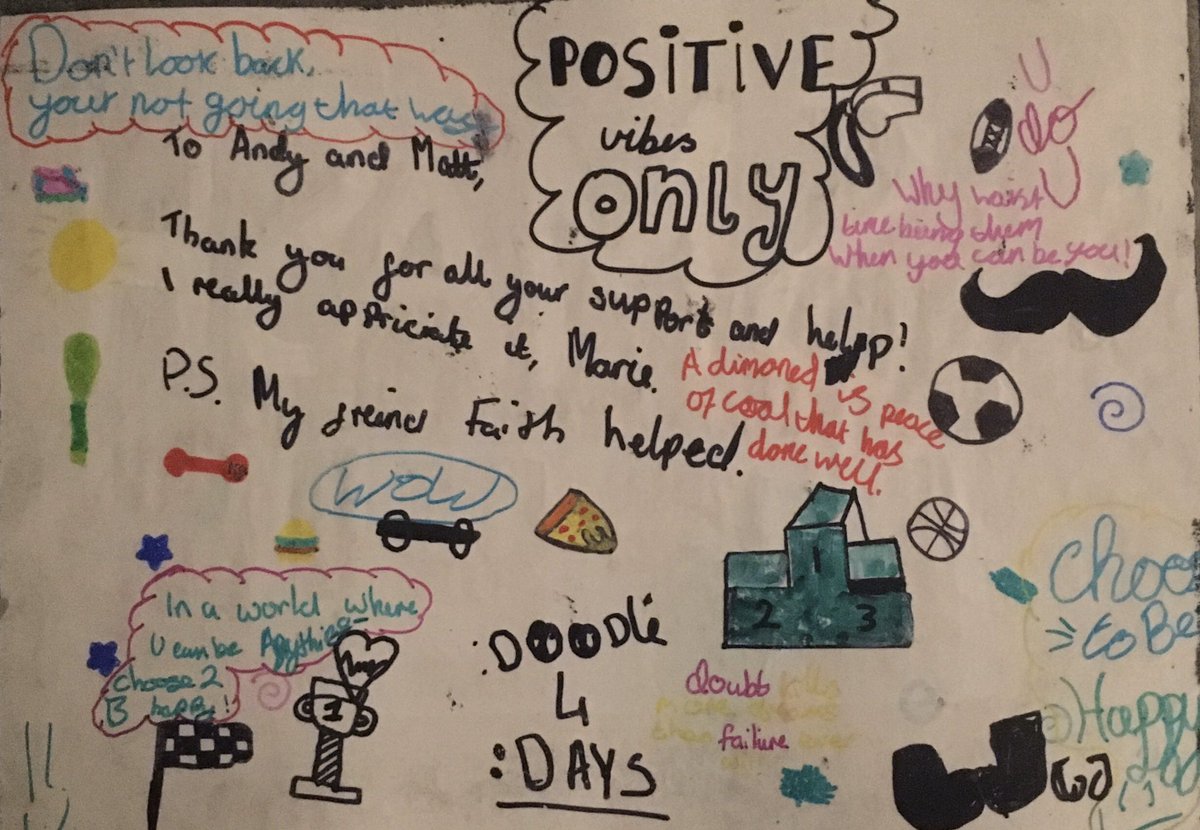 Don't look back,
your not going that way
POSITIVE
vibes
ONLY
U
do
U
Why waist
time being them
When you can be you!
To Andy and Matt,
Thank you for all your support and help!
I really appriciate it, Marie.
P.S. My freind Faith helped.
A dimoned is peace
of coal that has
done well.
WOW
1
2
3
In a world where
U can be Anything
choose 2
B happy!
1
:DOODLE
4
:DAYS
doubt kills
more dreams
than failure ever
will
Choose
to Be
Happy